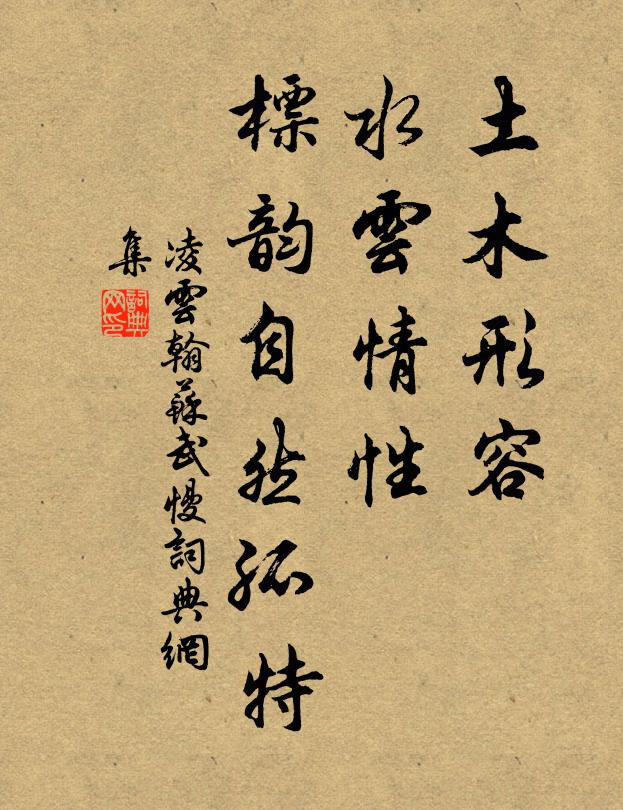 土木形容
水雲情性
標韵自然孤特
凌雲翰蘇武慢詞典網
集
詞典网印